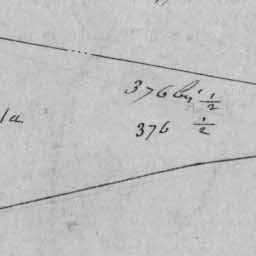 376 bis 1/2
376 1/2
1a